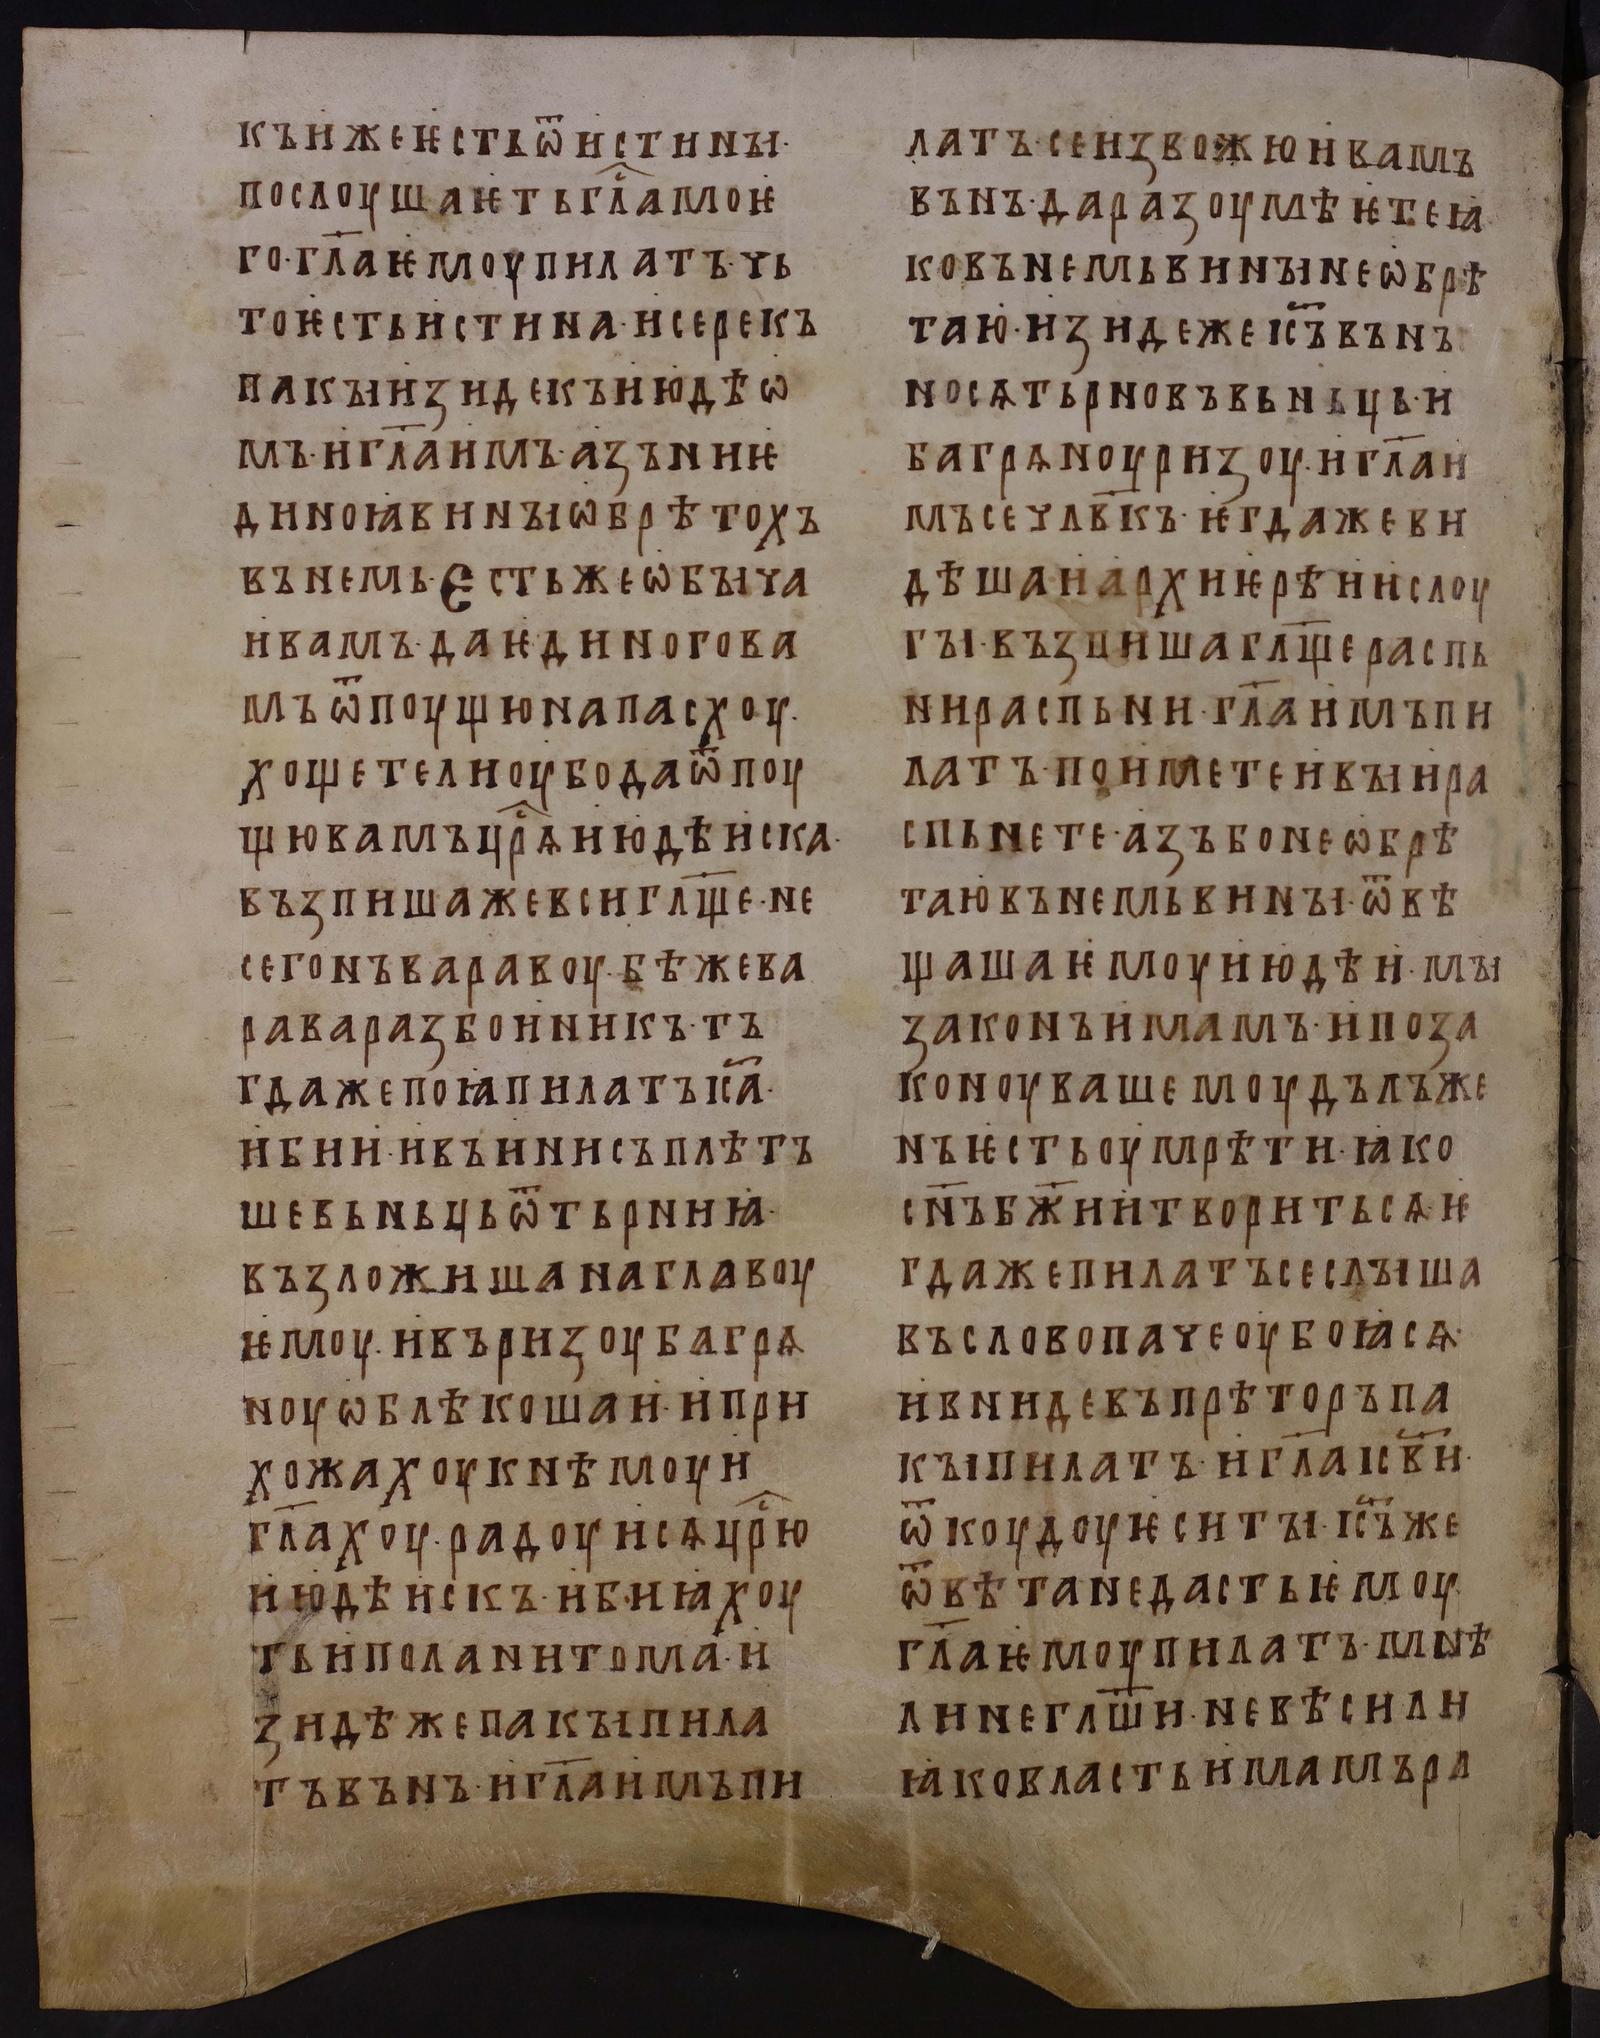 къижеѥстьѿистины·
послоушаѥтьгл҇амоѥ
го·гл҃аѥмоупилатъ·чь
тоѥстьистина·исерекъ
пакыизидекъиюдѣѡ
мъ·игл҃аимъ·азъниѥ
диноꙗвиныѡбрѣтохъ
въньмь·Єстьжеѡбыча
ивамъ·даѥдиногова
мъѿпоущюнапасхоу·
хощетелиоубодаѿпоу
щювамъцр҇ѧиюдѣиска·
възпишажевсигл҃ще·не
сегонъваравоу·бѣжева
раваразбоиникъ·тъ
гдажепоꙗпилатъіс҃а·
ибии·ивъинисъплѣтъ
шевьньцьѿтьрниꙗ·
възложишанаглавоу
ѥмоу·ивъризоубагрѧ
ноуѡблѣкошаи·ипри
хожахоукнѣмоуи
гл҃ахоу·радоуисѧцр҇ю
июдѣискъ·ибиꙗхоу
тьиполанитома·и
зидѣжепакыпила
тъвънъ·игл҃аимъпи
латъ·сеизвожюивамъ
вънъ·даразоумѣѥтеꙗ
ковънемьвинынеѡбрѣ
таю·изидежеіс҃ъвънъ
носѧтьрновъвьньць·и
багрѧноуризоу·игл҃аи
мъсечл҃вкъ·ѥгдажеви
дѣшаиархиѥрѣиислоу
гы·възпишагл҃щераспь
нираспьни·гл҃аимъпи
латъ·поиметеивыира
спьнете·азъбонеѡбрѣ
таювънемьвины·ѿвѣ
щашаѥмоуиюдѣи·мы
законъимамъ·ипоза
коноувашемоудълъже
нъѥстьоумрѣти·ꙗко
сн҃ъбж҃иитворитьсѧ·ѥ
гдажепилатъсеслыша
въсловопачеоубоꙗсѧ·
ивнидевъпрѣторъпа
кыпилатъ·игл҃аісв҃и·
ѿкоудоуѥситы·іс҃ъже
ѿвѣтанедастьѥмоу·
гл҃аѥмоупилатъ·мнѣ
линегл҃ши·невѣсили
ꙗковластьимамъра